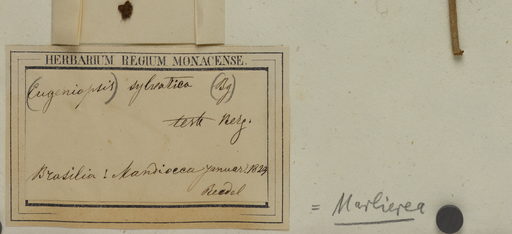 HERBARIUM REGIUM MONACENSE.
(Eugeniopsis) sylvatica (Bg)
teste Berg.
Brasilia: Mandiocca Januar. 1824
Riedel
= Marlierea